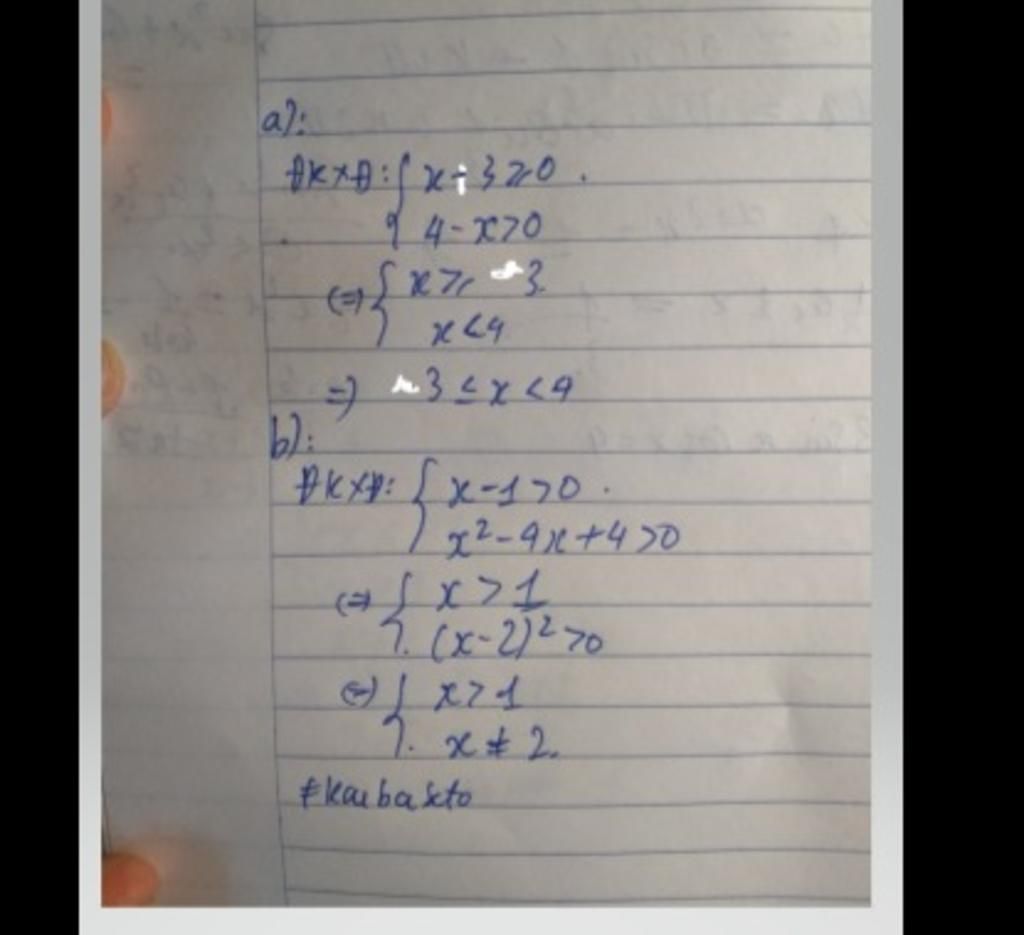 a):
ĐKXĐ: { x+3≥0.
4-x>0
(=) { x≥ -3.
x<4
=) -3 ≤ x < 4
b):
ĐKXĐ: { x-1>0.
x²-4x+4>0
(=) { x>1
(x-2)²>0
(=) { x>1
x≠2.
#kaibaseto